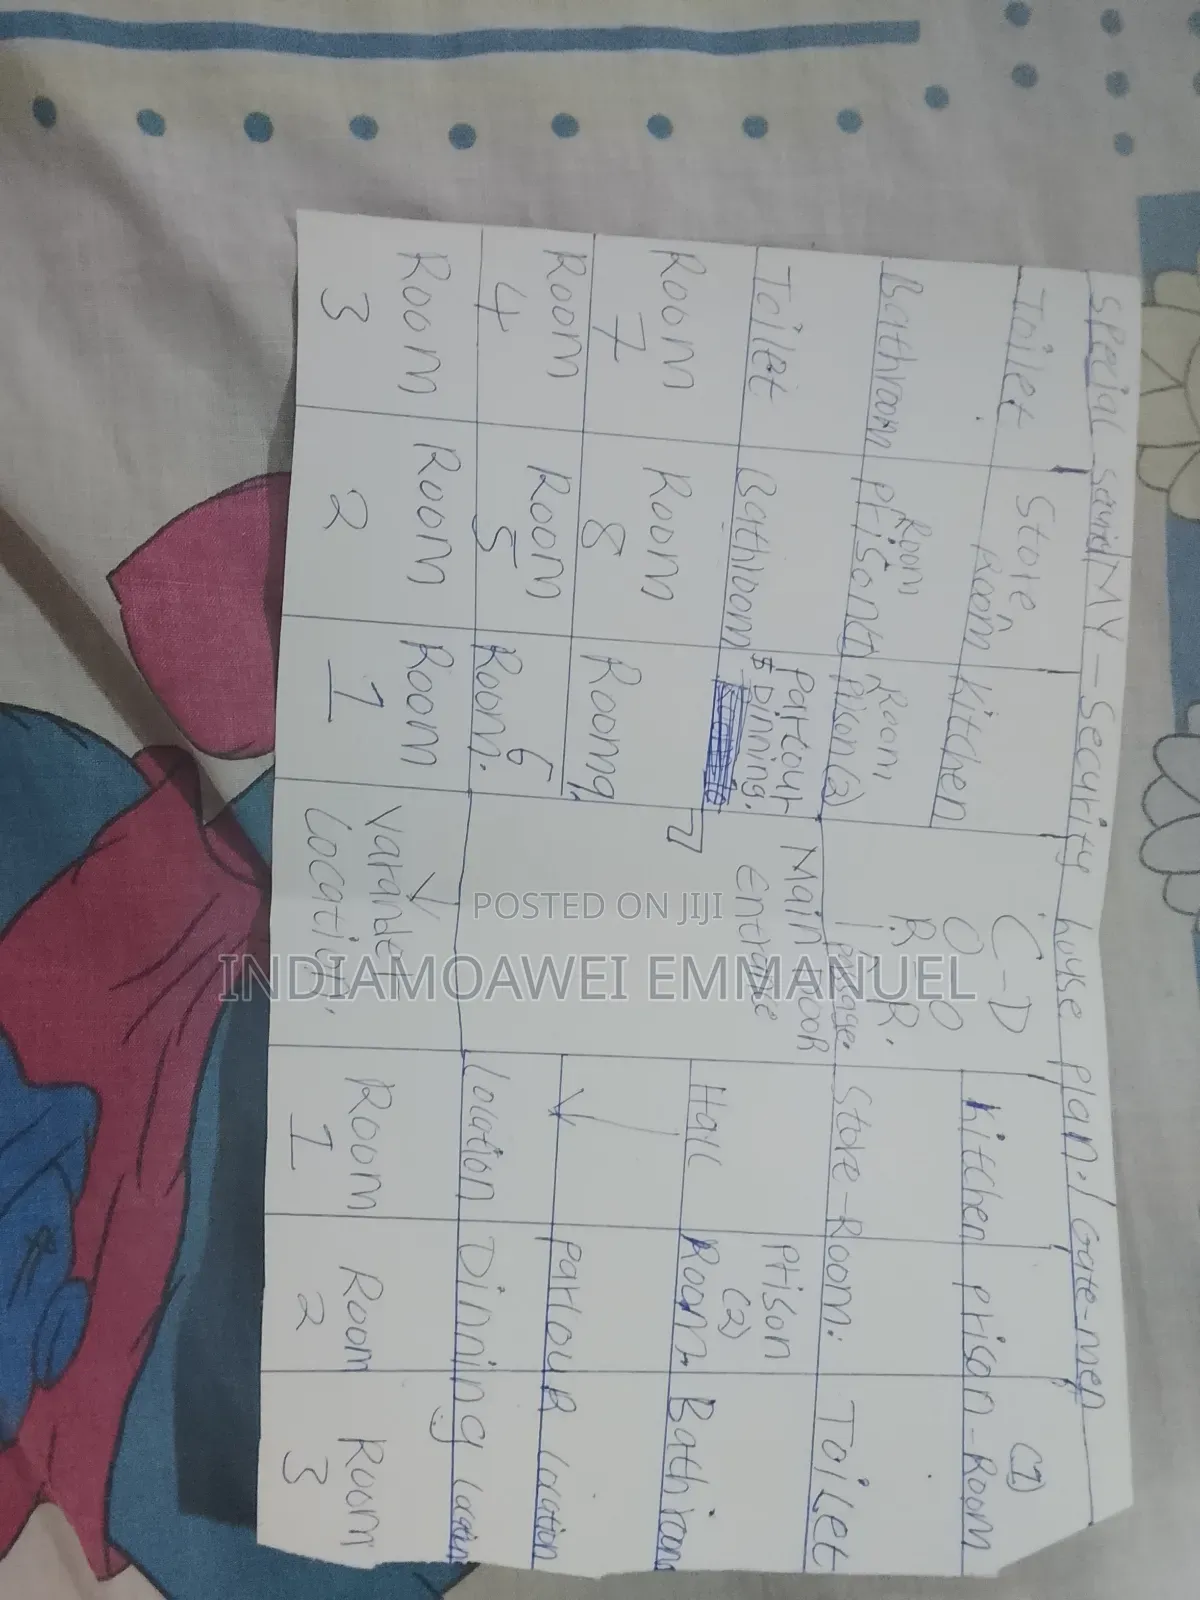 Special Squrid/MY-Security house plan./Gate-men
Toilet
Store
Room
Kitchen
C-D
O O
R R.
I
Passage.
Kittchen
Prison-Room
(1)
Bathroom
Room
Prison(1)
Room
Prison(2)
Store-Room:
Toilet
Toilet
Bathroom
Parlour
$ Dinning.
Main Door
Entrance
Hall
Prison
(2)
Room.
Bathroom
Room
7
Room
8
Room9
Parlour Location
Room
4
Room
5
Room.
6
Location Dinning
Room
3
Room
2
Room
1
Varander
Location.
Room
1
Room
2
Room
3
POSTED ON JIJI
INDIAMOAWEI EMMANUEL